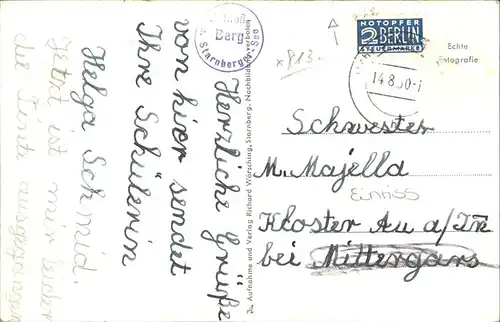 Herzliche Grüße
von hier sendet
Ihre Schülerin
Helga Schmid.
Jetzt ist mir leider
die Tinte ausgegangen
Berg
Starnberger-See
Aufnahme und Verlag Richard Wörsching, Starnberg, Nachbildung verboten
x 813
NOTOPFER
2 BERLIN
STEUERMARKE
14.8.50-1
Echte
Fotografie
Schwester
M. Majella
Einriss
Kloster Au a/Inn
bei Mittergars